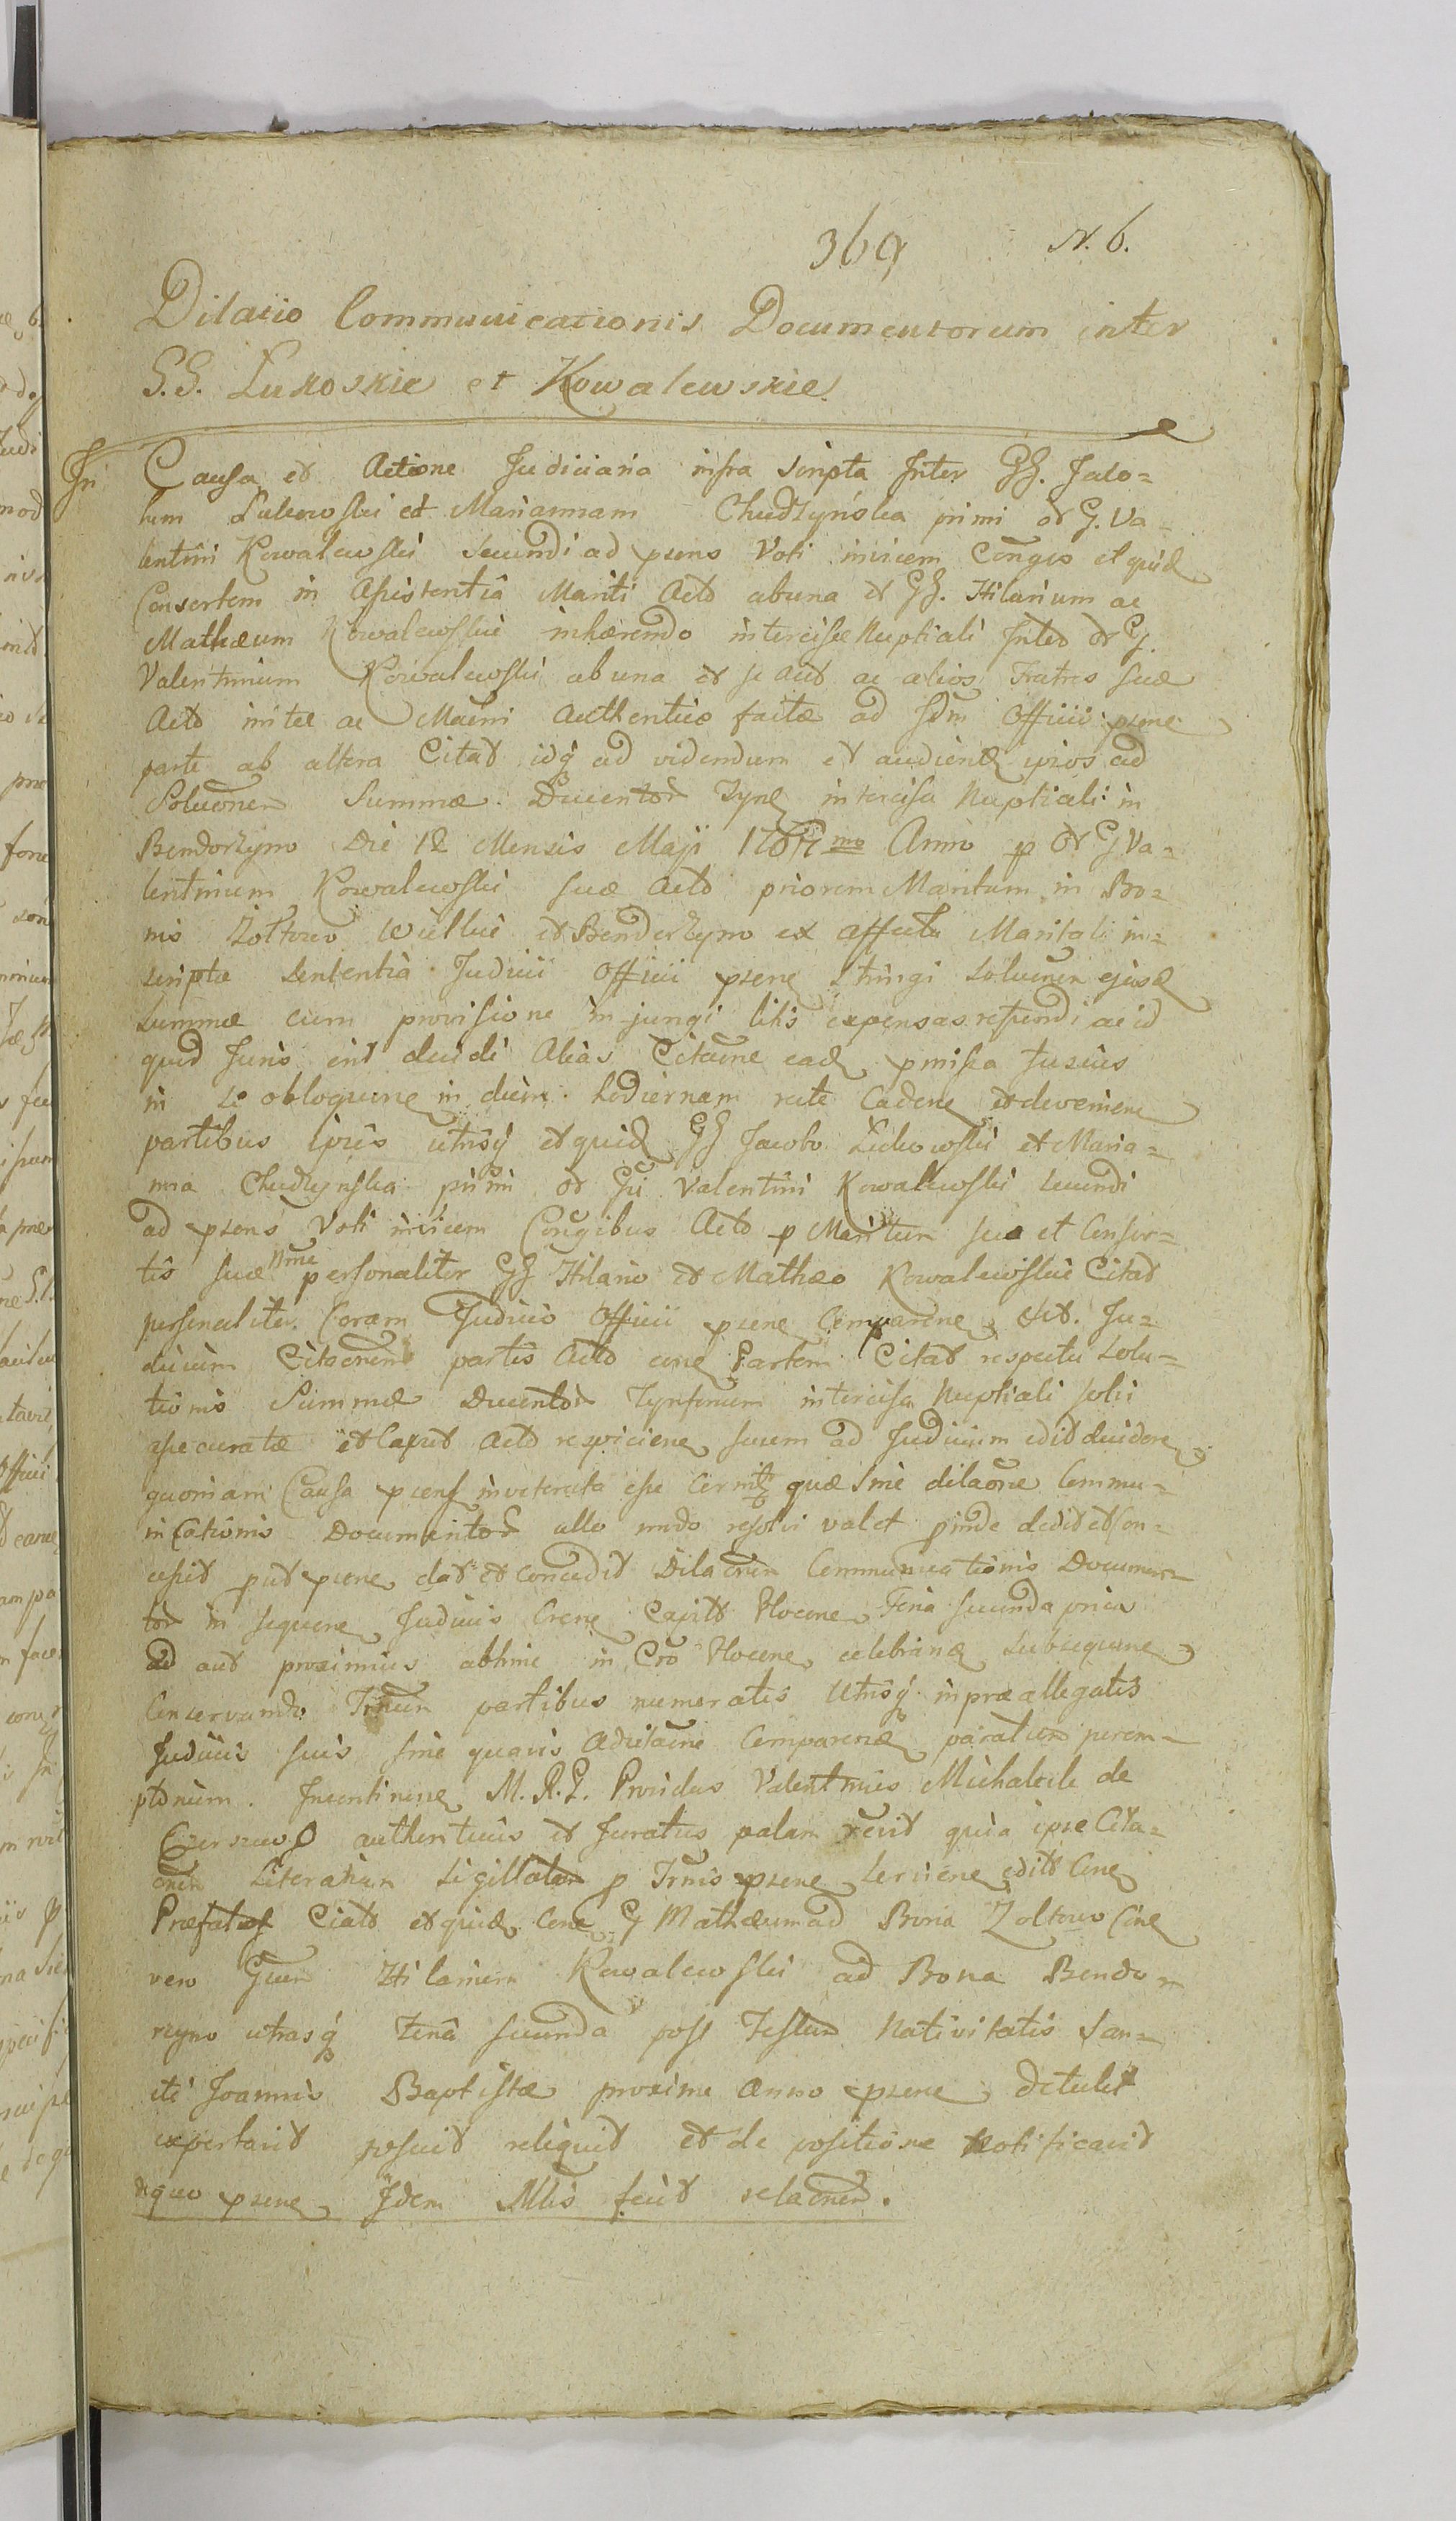 369 N. 6.
Dilatio Communicationis Documentorum inter
G.G. Lukoskie et Kowalewskie
In Causa et Actione Judiciaria infra scripta Inter GG. Jaco=
bum Lukowski et Mariannam Chudzyńska primi et G. Va=
lentini Kowalewski Secundi ad psens Voti invicem Conges et quid
Consortem in Assistentia Mariti Acto ab una et GG. Hilarium ac
Mathæum Kowalewskie inhærendo intercisæ Nuptiali Inter et G.
Valentinum Kowalewski ab una et se aut ac alios Fratres suæ
parte ab altera Citat idq ad videndum et audiend ipsos ad
Soluonem Summæ Ducentor Tynf intercisa Nuptiali in
Bendorzyno Die 12 Mensis Maji Anno p et G Va=
lentinum Kowalewski suæ Acto priorem Maritum in Bo=
nis Zoltowo Wielkie et Bendorzyno ex affectu Maritali in=
scriptæ Sententia Judicii Officii psene Stringi soluonem ejusd
summæ cum provisione injungi litis expensas refundi ac id
quod Juris erit decidi Alias Citaone ead pmissa fusius
in se obloquene in diem hodiernam rite Cadene et deveniene
partibus ipsis utrisq et quid GG Jacobo Lukowski et Maria=
nna Chudzynska primi et Gi Valentini Kowalewski secundi
ad psens Voti invicem Congibus Acto p Maritum suo et Consor=
tis suæ nme personaliter GG Hilario et Mathæo Kowalewskie Citat
personaliter. Coram Judicio Officii psene Comparene etc. Ju=
dicium Citaonem partis Acto cone Partem Citat respectu Solu=
tionis Summæ Ducentor Tynfonum intercisa Nuptiali solvi
assecuratæ et Caput Acto respiciene suum ad Judicium edit decidere
quoniam Causa psens inveterata esse Cernitr quæ sine dilaone Commu=
nicationis Documentor ullo modo resolvi valet pinde dedit et con=
cessit put psene dat et concedit Dilaonem Communicationis Documen=
tor in sequene Judiciis Crene Capitt Plocene Feria secunda pria
ad aut proximius abhinc in Cro Plocene celebrand subsequene
Conservando Trnum partibus numeratis Utrisq in præallegatis
Judiciis suis sine quavis Adcitaone Comparend paratum perem=
ptorium. Incontinene M.R.G. Providus Valentinus Michalak de
authenticus et Juratus palam recit quia ipse Cita=
onem Literalem Sigillatam p Trnis psene serviene edito Cone
Præfatos Citato et quid Cone G Mathæum ad Bona Zoltowo Cone
vero Gum Hilarium Kowalewski ad Bona Bendo=
rzyno utrasq Feria secunda post Festum Nativitatis San=
cti Joannis Baptistæ proxime Anno psene detulit
exportavit posuit reliquit et de positione notificavit
de quo psene Idem Mlis fecit relaonem.